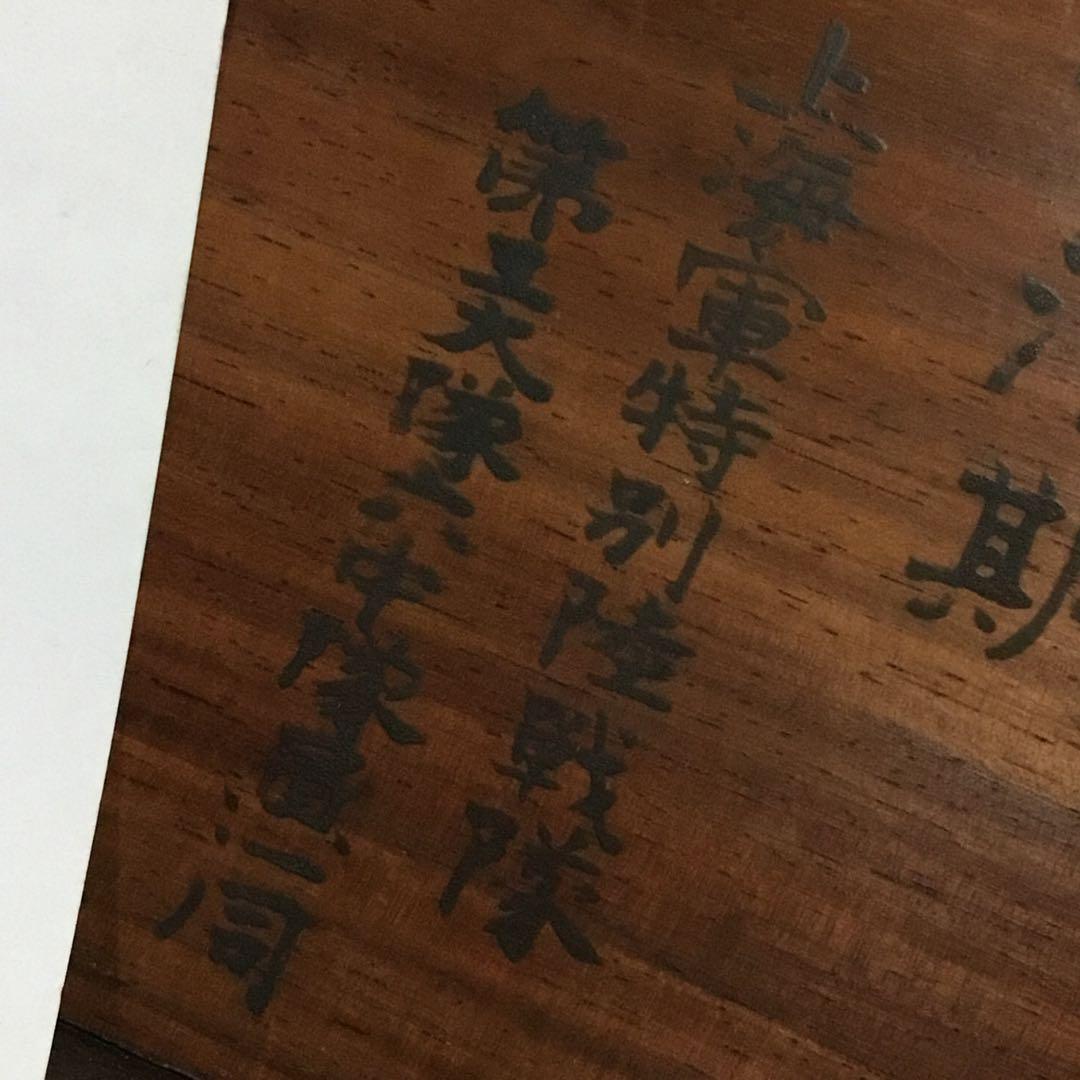 上海軍特別陸戦隊
第五大隊六中隊員一同